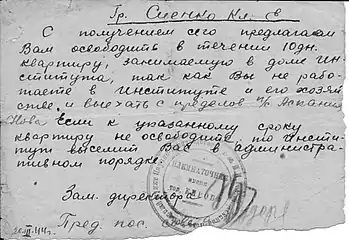 Гр. Сиенко Кл. Св
С получением сего предлагаем
Вам освободить в течении 10дн.
квартиру, занимаемую в доме Ин-
ститута, так как Вы не рабо-
таете в Институте и его хозяй
стве и выехать с пределов Аскания
Нова Если к указанному сроку
квартиру не освободите, то Инсти-
тут выселит Вас в администра-
тивном порядке
Зам. директора
Пред. пос.